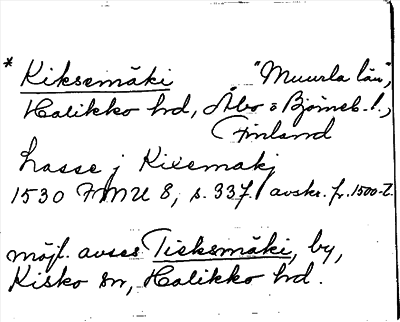 * Kiksemäki "Muurla län",
Halikko hd, Åbo o Björneb. l.,
Finland
Lasse j Kixemakj
1530 FMU 8, s. 33f. avskr. fr. 1500-t.
möjl. avses Tieksmäki, by,
Kisko sn, Halikko hd.